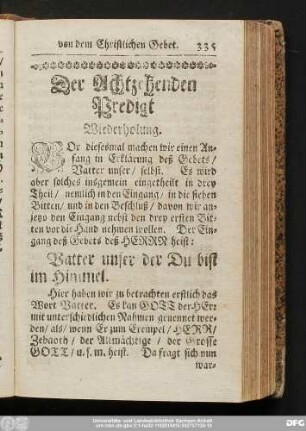 von dem Christlichen Gebet. 335
Der Achtzehenden
Predigt
Wiederholung.
VOr diesesmal machen wir einen An-
fang in Erklärung deß Gebets /
Vatter unser / selbst. Es wird
aber solches insgemein eingetheilt in drey
Theil / nemlich in den Eingang / in die sieben
Bitten / und in den Beschluß / davon wir an-
jetzo den Eingang nebst den drey ersten Bit-
ten vor die Hand nehmen wollen. Der Ein-
gang deß Gebets deß HERRN heist:
Vatter unser der Du bist
im Himmel.
Hier haben wir zu betrachten erstlich das
Wort Vatter. Es kan GOTT der HErr
mit unterschiedlichen Nahmen genennet wer-
den / als / wenn Er zum Exempel / HERR /
Zebaoth / der Allmächtige / der Grosse
GOTT / u. s. m. heist. Da fragt sich nun
war-
Universitäts- und Landesbibliothek Sachsen-Anhalt
DFG